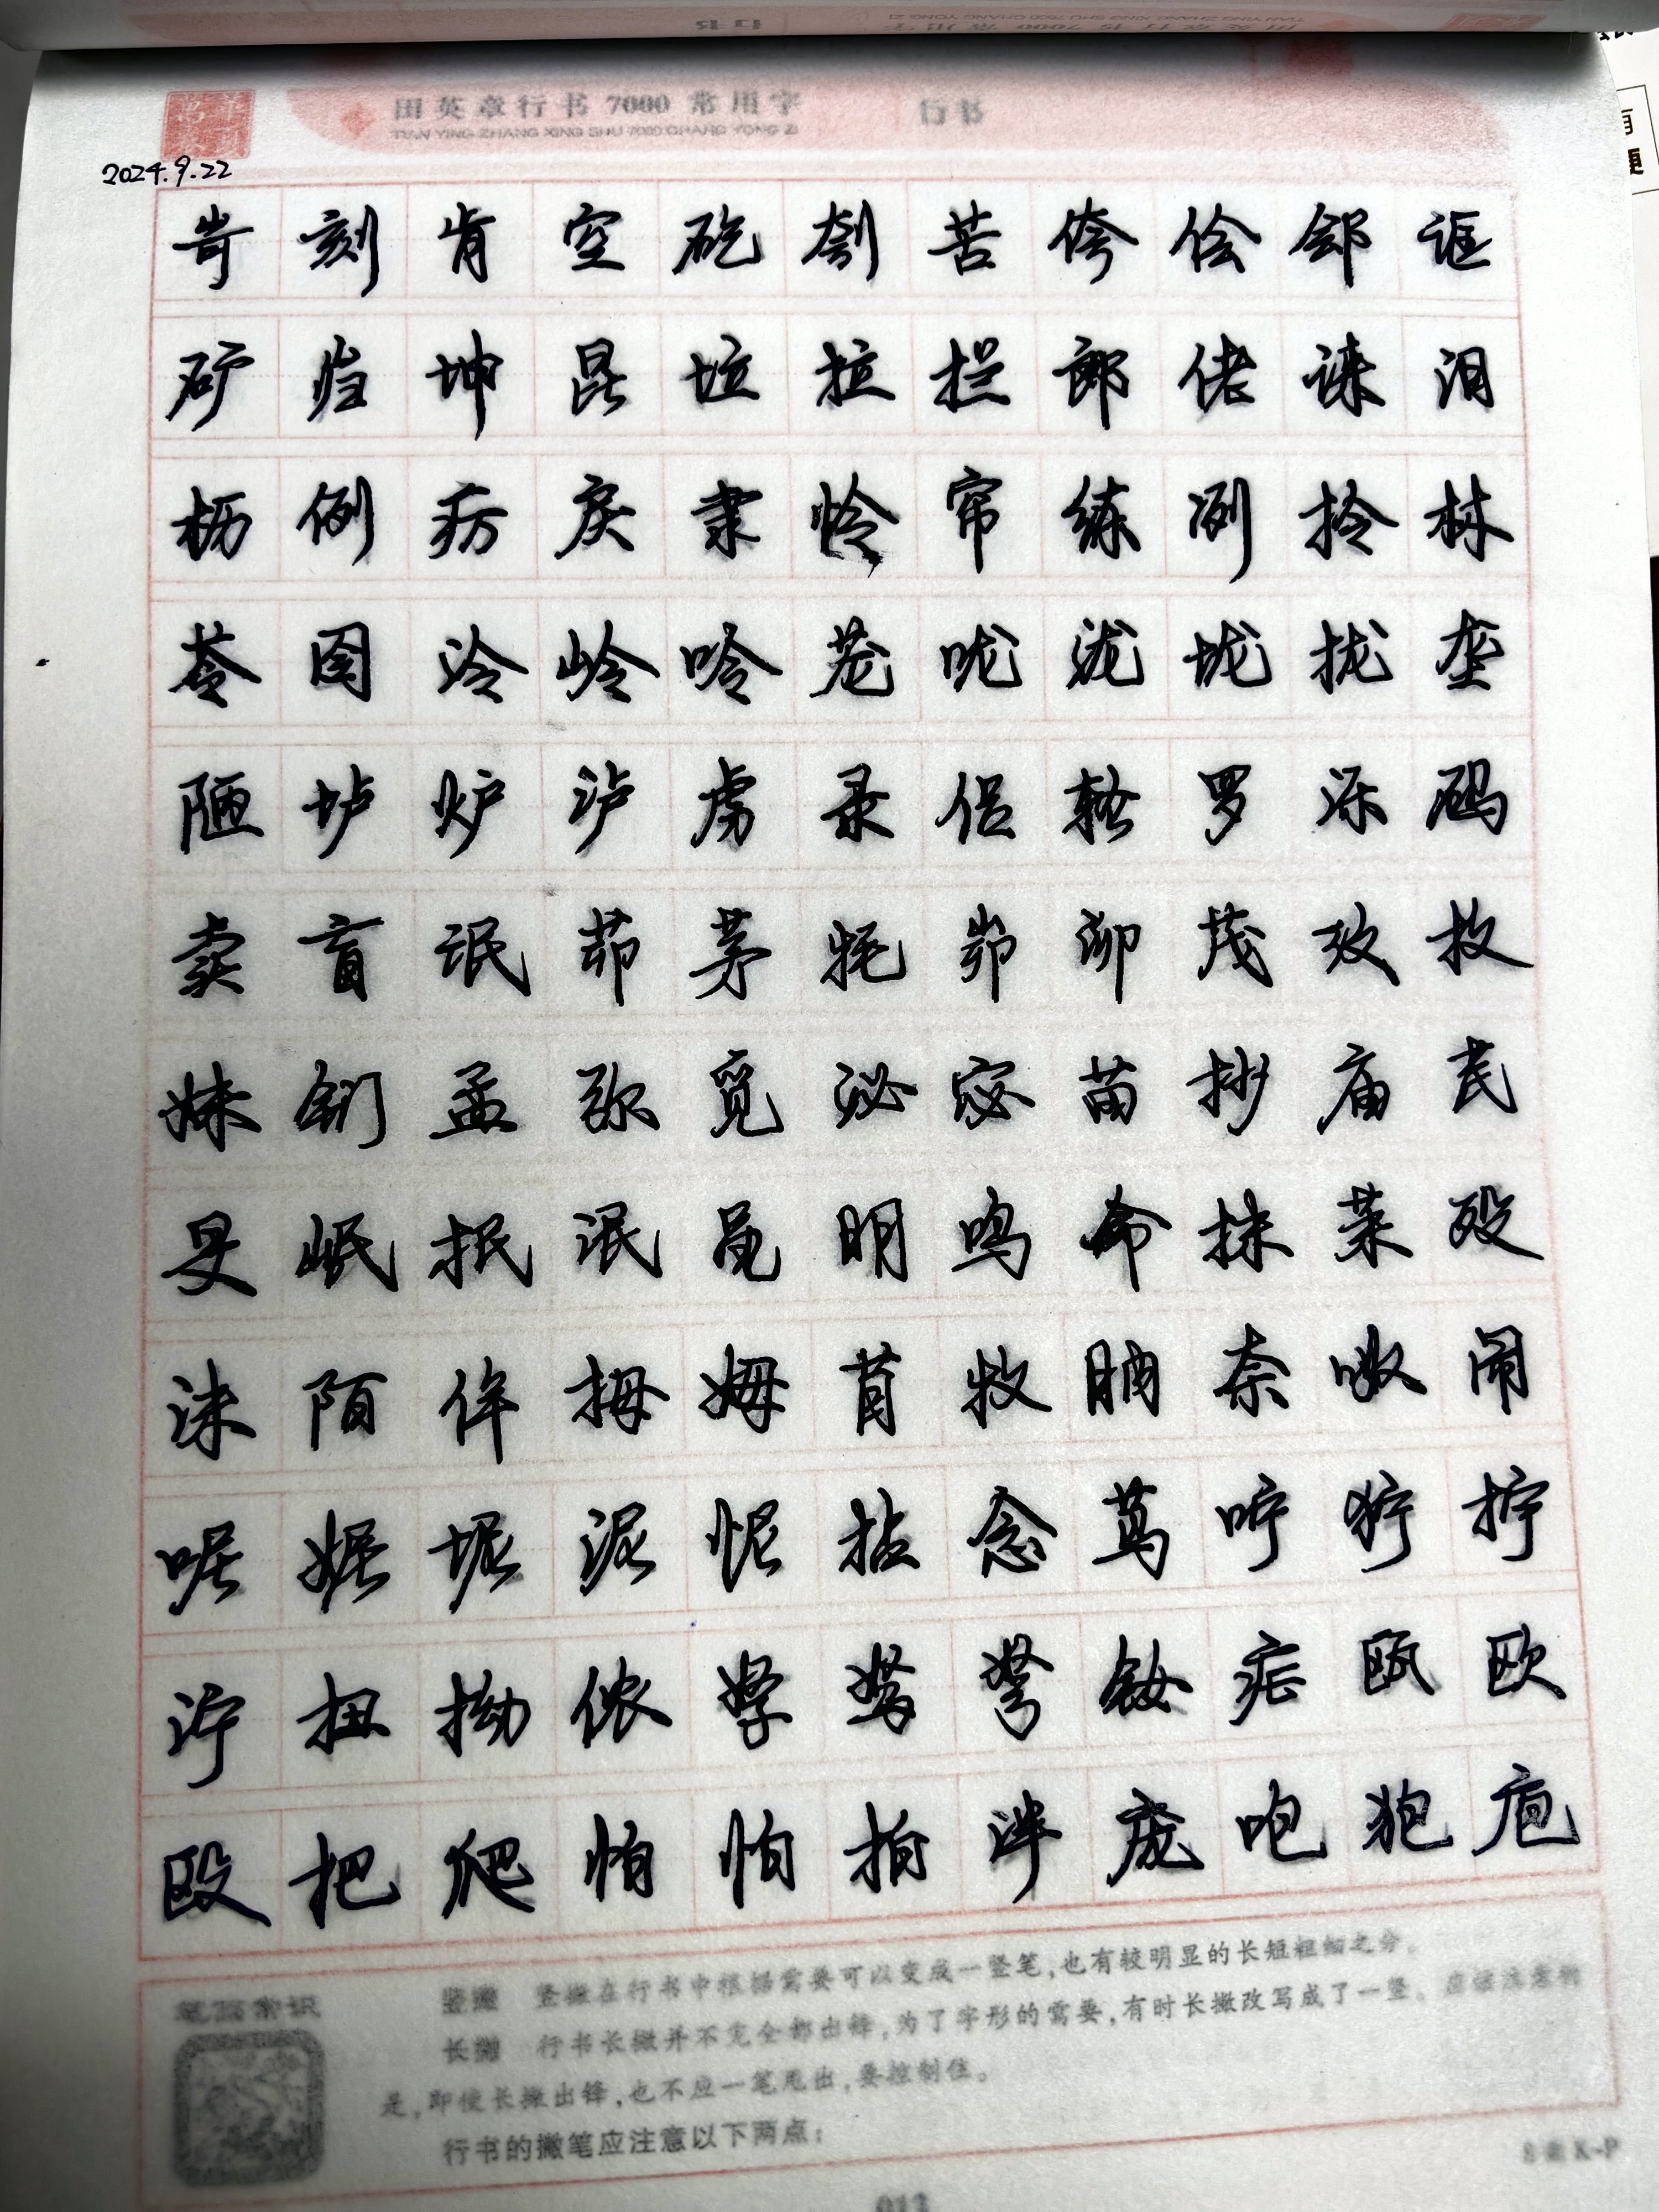 田英章行书 7000 常用字 行书
TIAN YING ZHANG XING SHU 7000 CHANG YONG ZI
2024.9.22
岢 刻 肯 空 矻 刳 苦 侉 侩 郐 诓
矿 岿 坤 昆 垃 拉 拦 郎 佬 诔 泪
枥 例 疠 戾 隶 怜 帘 练 冽 拎 林
苓 囹 泠 岭 呤 茏 咙 泷 垅 拢 垄
陋 垆 炉 泸 虏 录 侣 辂 罗 泺 码
卖 盲 氓 茆 茅 牦 峁 泖 茂 玫 枚
妹 钔 孟 弥 觅 泌 宓 苗 抄 庙 苠
旻 岷 抿 泯 黾 明 鸣 命 抹 茉 殁
沫 陌 侔 拇 姆 苜 牧 肭 奈 呶 闹
呢 妮 坭 泥 怩 拈 念 茑 咛 狞 拧
泞 扭 拗 侬 孥 驽 弩 钕 疟 瓯 欧
殴 杷 爬 怕 怕 拍 泮 庞 咆 狍 庖
笔画常识
竖撇 竖撇在行书中根据需要可以变成一竖笔,也有较明显的长短粗细之分。
长撇 行书长撇并不完全都出锋,为了字形的需要,有时长撇改写成了一竖。应该注意的
是,即使长撇出锋,也不应一笔甩出,要控制住。
行书的撇笔应注意以下两点:
8画K~P
013